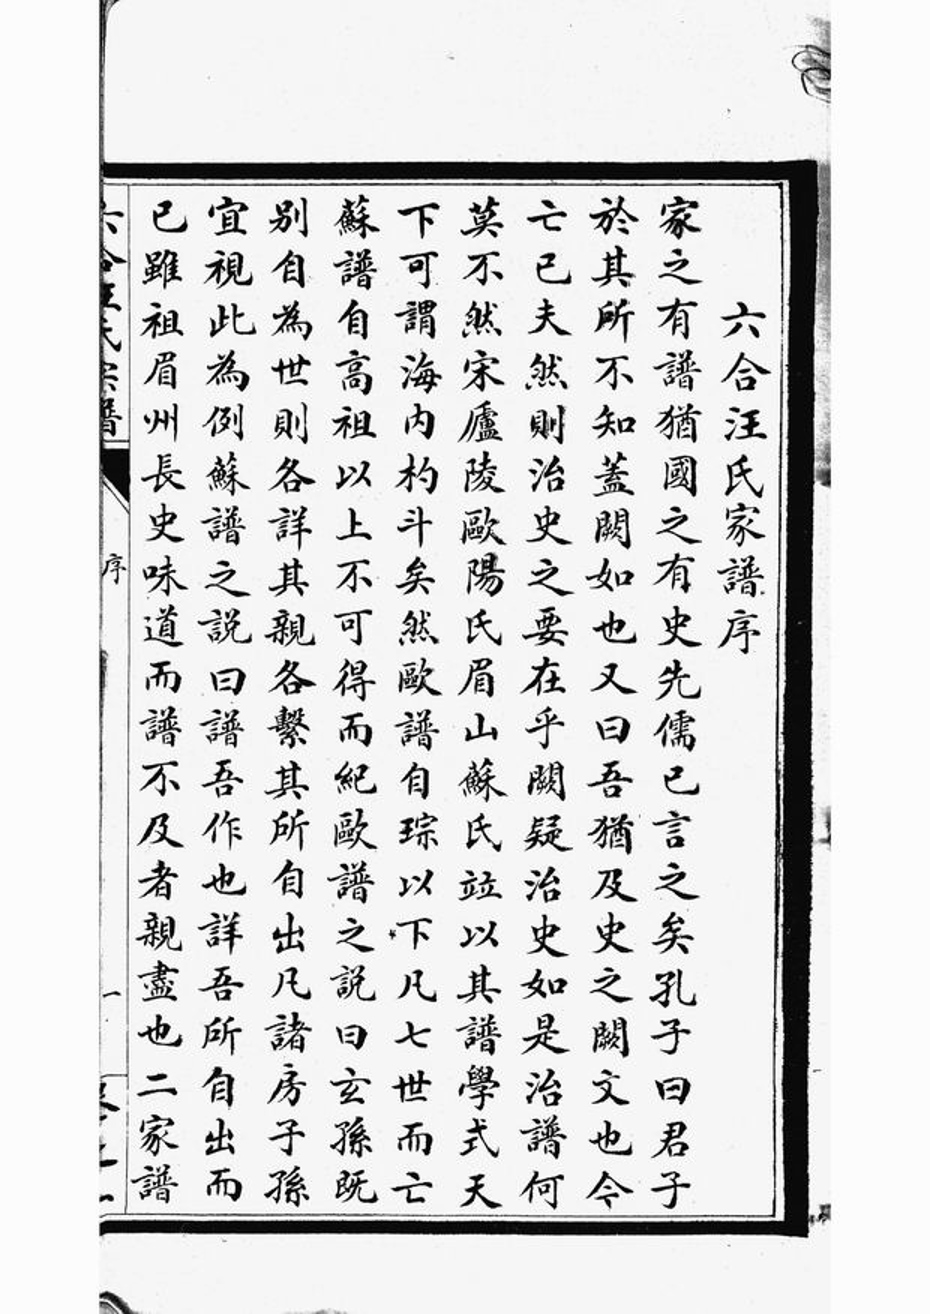 六合汪氏家譜序
家之有譜猶國之有史先儒已言之矣孔子曰君子
於其所不知蓋闕如也又曰吾猶及史之闕文也今
亡已夫然則治史之要在乎闕疑治史如是治譜何
莫不然宋廬陵歐陽氏眉山蘇氏竝以其譜學式天
下可謂海內杓斗矣然歐譜自琮以下凡七世而亡
蘇譜自高祖以上不可得而紀歐譜之説曰玄孫既
別自為世則各詳其親各繫其所自出凡諸房子孫
宜視此為例蘇譜之説曰譜吾作也詳吾所自出而
已雖祖眉州長史味道而譜不及者親盡也二家譜
六合汪氏宗譜
序
一